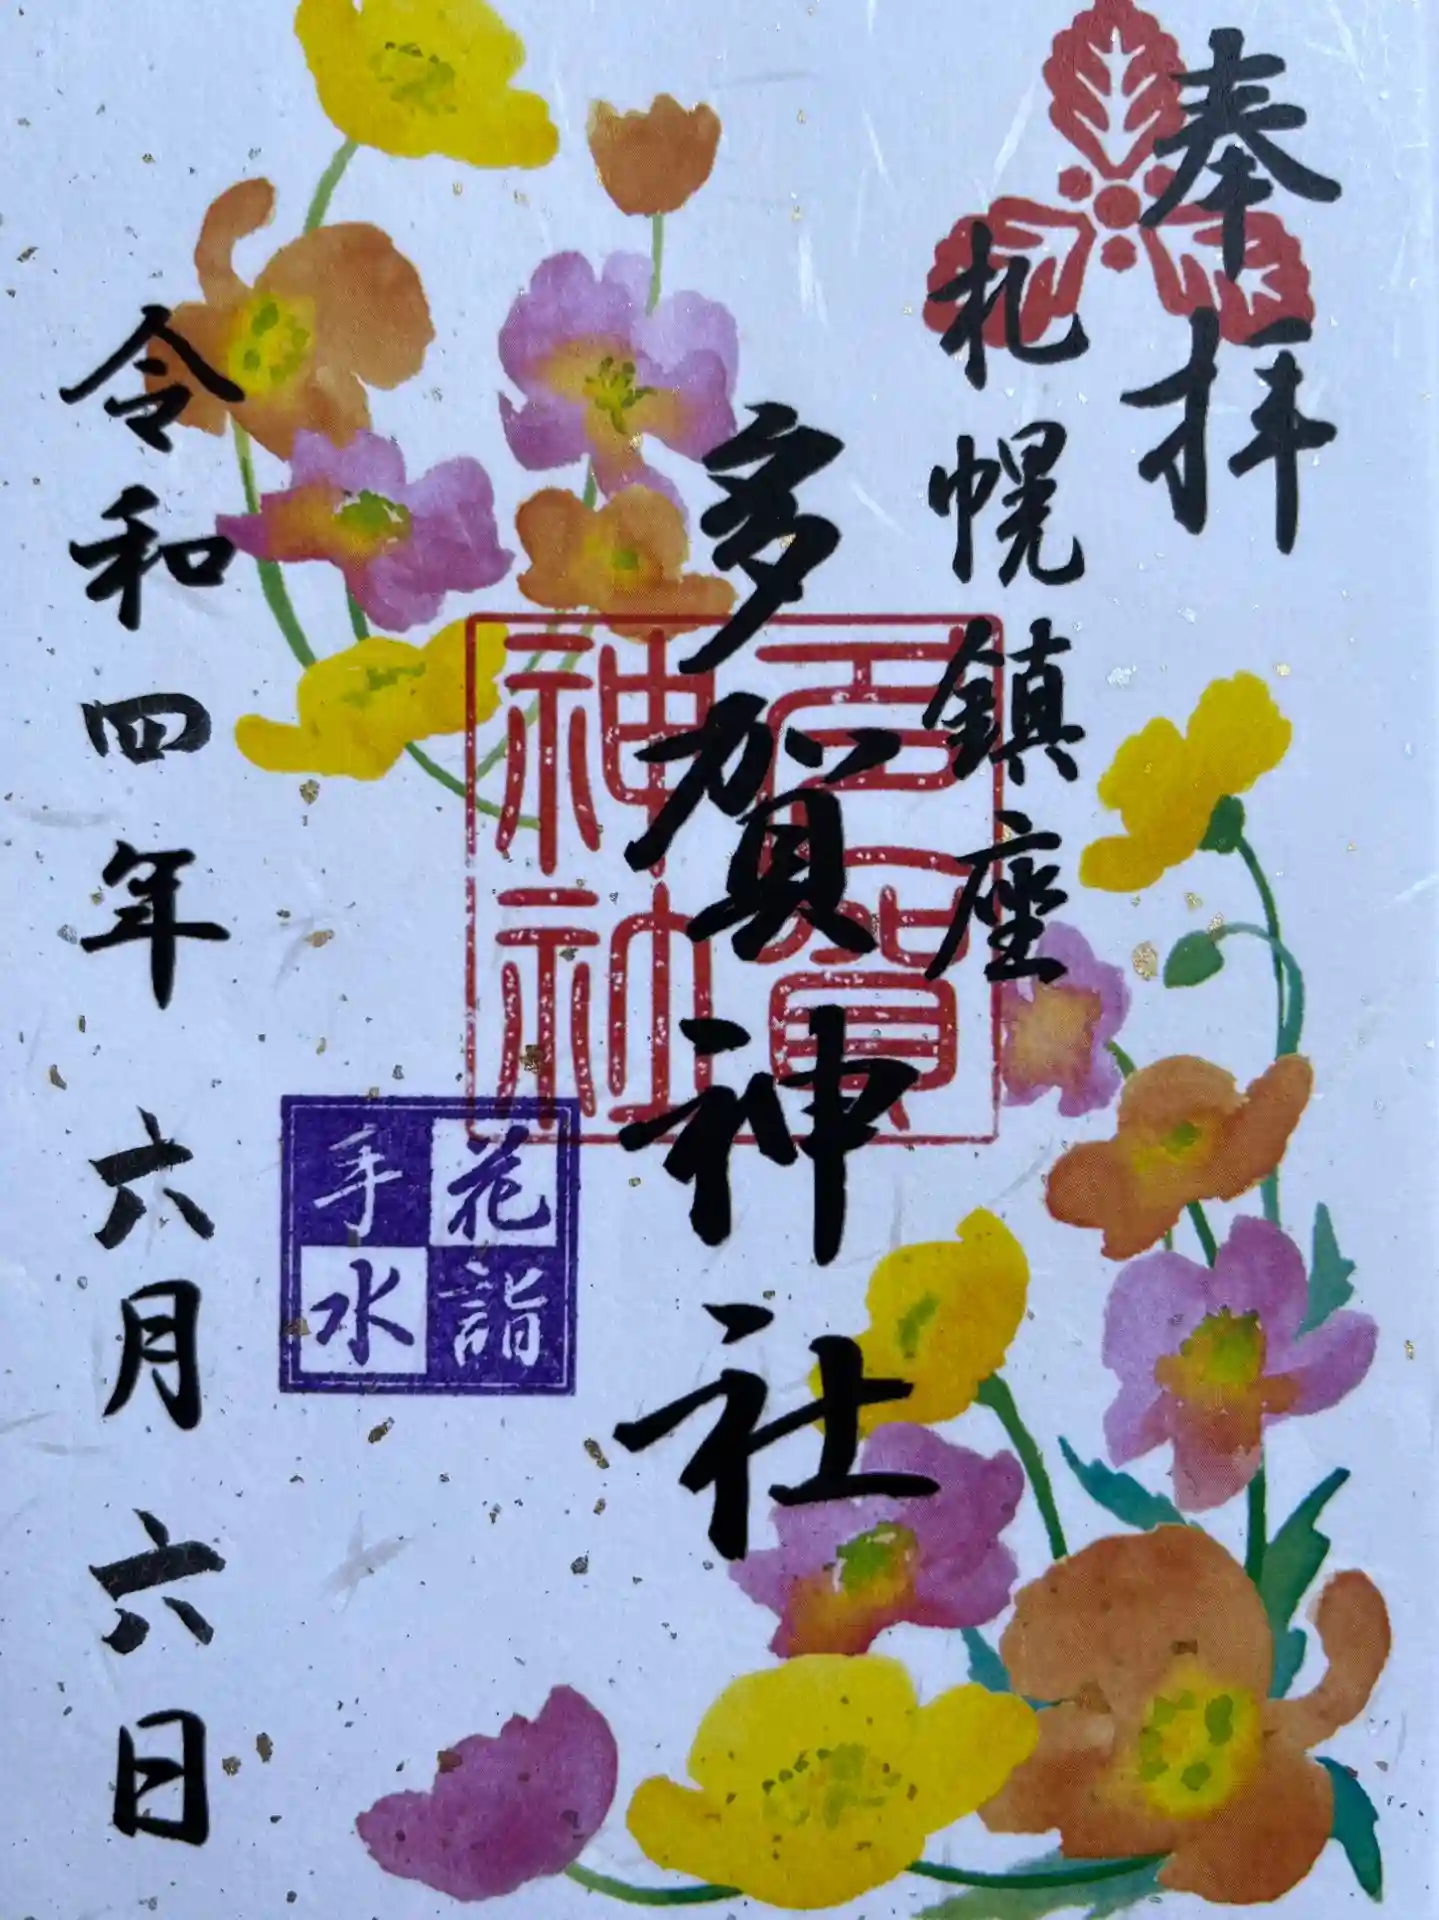 奉拝
札幌鎮座
多賀神社
多賀
神社
花詣
手水
令和四年六月六日